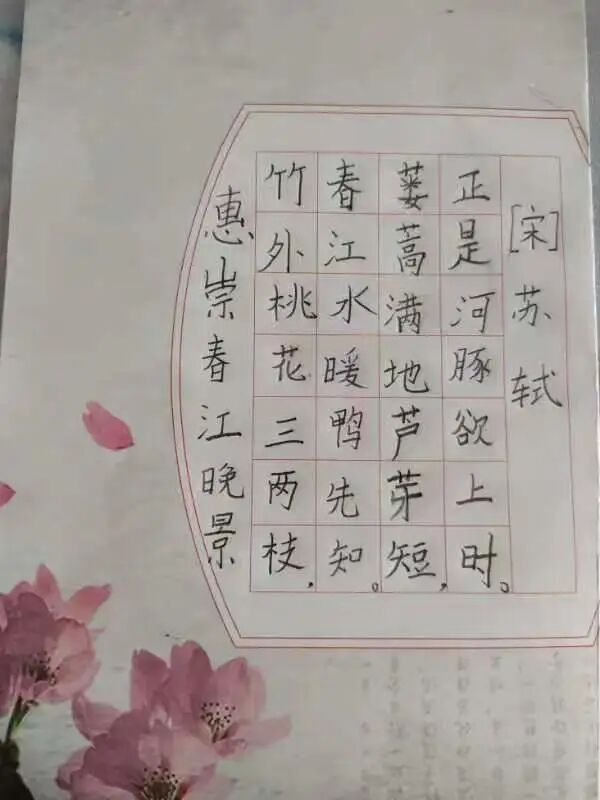 惠崇春江晚景
竹外桃花三两枝，
春江水暖鸭先知。
蒌蒿满地芦芽短，
正是河豚欲上时。
[宋]苏轼